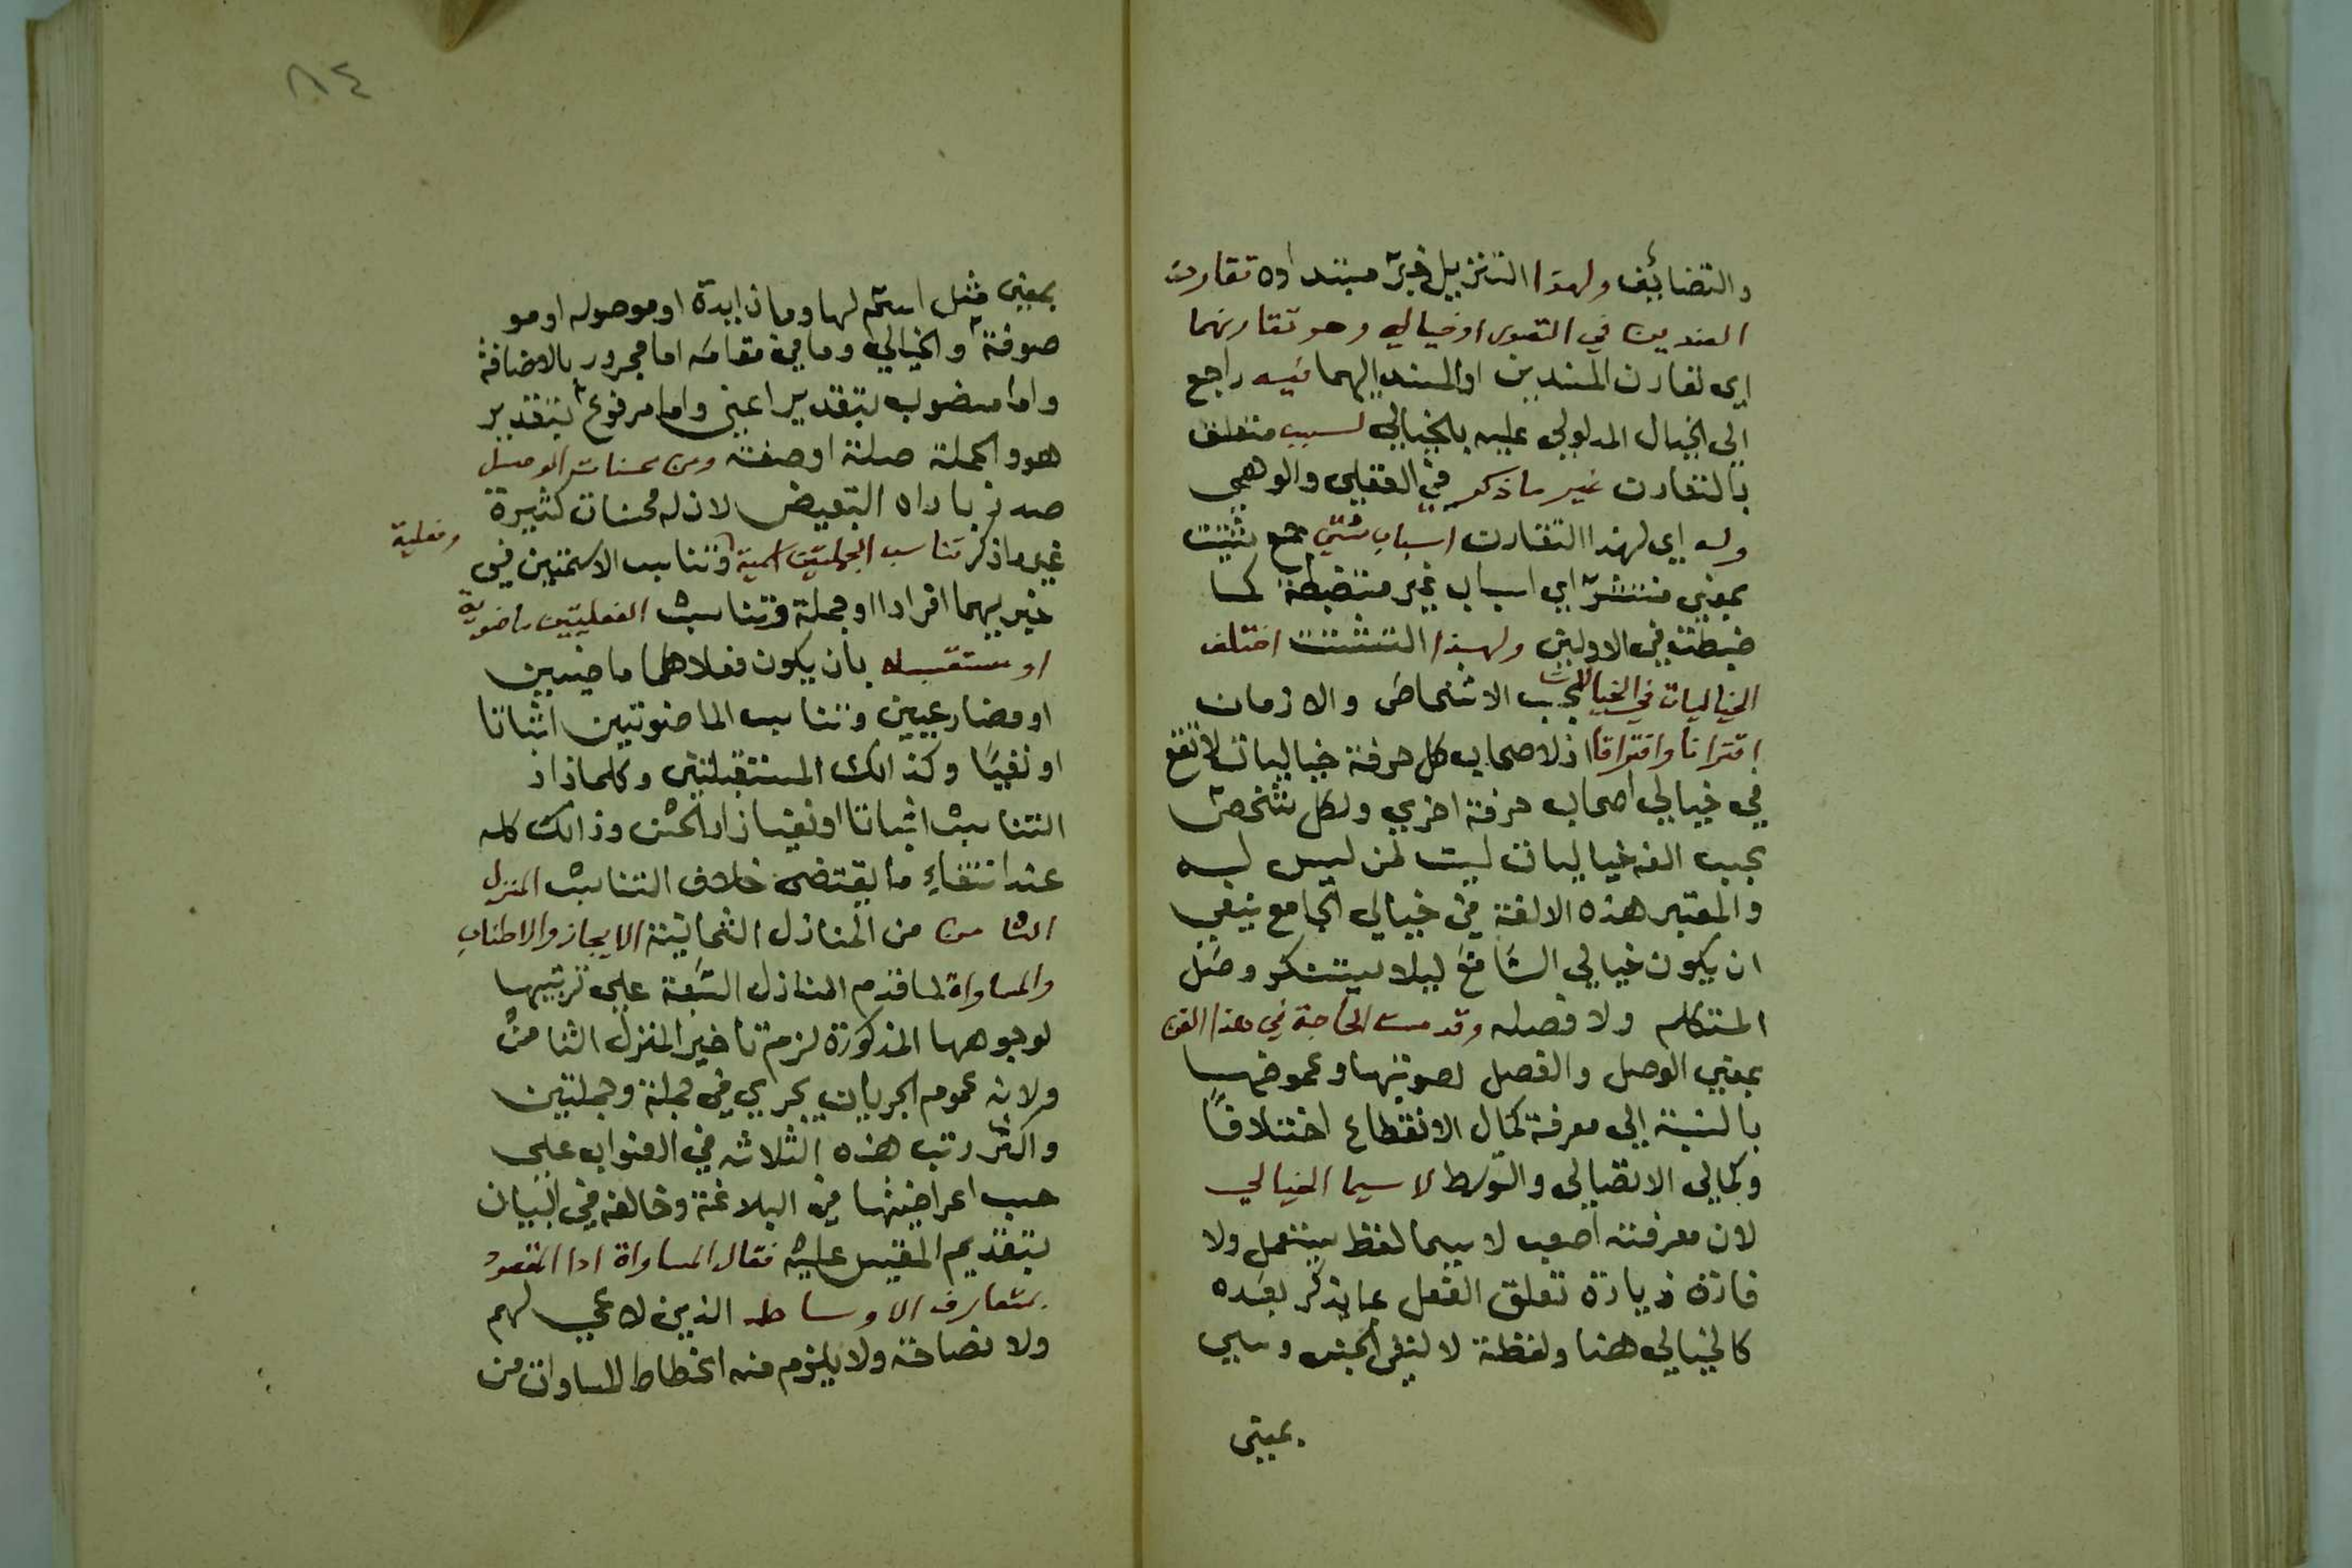 والتضائف ولهذا التنزيل خبر مبتداه تقارن
الضدين في التصور او خيالي وهو تقارنهما
اي تقارن المسندين او المسند اليهما فيه راجع
الى الخيال المدلولي عليه بالخيالي لسبب متعلق
بالتقارن غير ما ذكر في العقلي والوهمي
وله اي لهذا التقارن اسباب شتى جمع شتيت
بمعنى منتشرة اي اسباب غير منضبطة كما
ضبطت في الاولين ولهذا التشتت اختلف
الخياليات في الخيالات بحسب الاشخاص والازمان
اقترانا وافتراقا اذ لاصحاب كل حرفة خياليات لا تقع
في خيالي اصحاب حرفة اخري ولكل شخص
بحسب الفه خياليات ليست لمن ليس له
والمعتبر هذه الالفة في خيالي الجامع ينبغي
ان يكون خيالي السامع ليلا يستنكر وصل
المتكلم ولا فصله وقد مست الحاجة في هذا الفن
بمعني الوصل والفصل لصوبتها وغموضها
بالنسبة الي معرفة كمال الانقطاع اختلافا
وكمالي الاتصالي والتوسط لا سيما الخيالي
لان معرفته اصعب لا سيما لفظ يستعمل ولا
فادة زيادة تعلق الفعل بما يذكر بعده
كالخيالي هنا ولفظة لا لنفي الجنس وسي
بمعنى
٨٤
بمعنى مثل اسم لها وما زايدة او موصوله او مو
صوفة والخيالي وما في مقامه اما مجرور بالاضافة
واما منصوب بتقدير اعني واما مرفوع بتقدير
هو والجملة صلة او صفة ومن محسنات الوصل
صدر باداة التبعيض لان له محسنات كثيرة
غير ما ذكر تناسب الجملتين اسمية وفعلية وتناسب الاسمتين في
خبريهما افرادا او جملة وتناسب الفعليتين ماضوية
او مستقبله بان يكون فعلاهما ماضيين
او مضارعيين وتناسب الماضوتين اثباتا
او نفيا وكذالك المستقبلتين وكلما زاد
التناسب اثباتا او نفيا زاد الحسن وذالك كله
عند انتفاء ما يقتضي خلاف التناسب المنزل
الثامن من المنازل الثمانية الايجاز والاطناب
والمساواة لما قدم المنازل السبعة علي ترتيبها
لوجوهها المذكورة لزم تاخير المنزل الثامن
ولانه عموم الجريان يجري في جملة وجملتين
واكثر رتب هذه الثلاثه في العنوان علي
حسب اعراضيتها في البلاغة وخالفه في البيان
بتقديم المقيس عليه فقال المساواة ادا المقصود
بمتعارف الاوساط الذين لا عي لهم
ولا فصاحة ولا يلزم منه انحطاط المساوات من